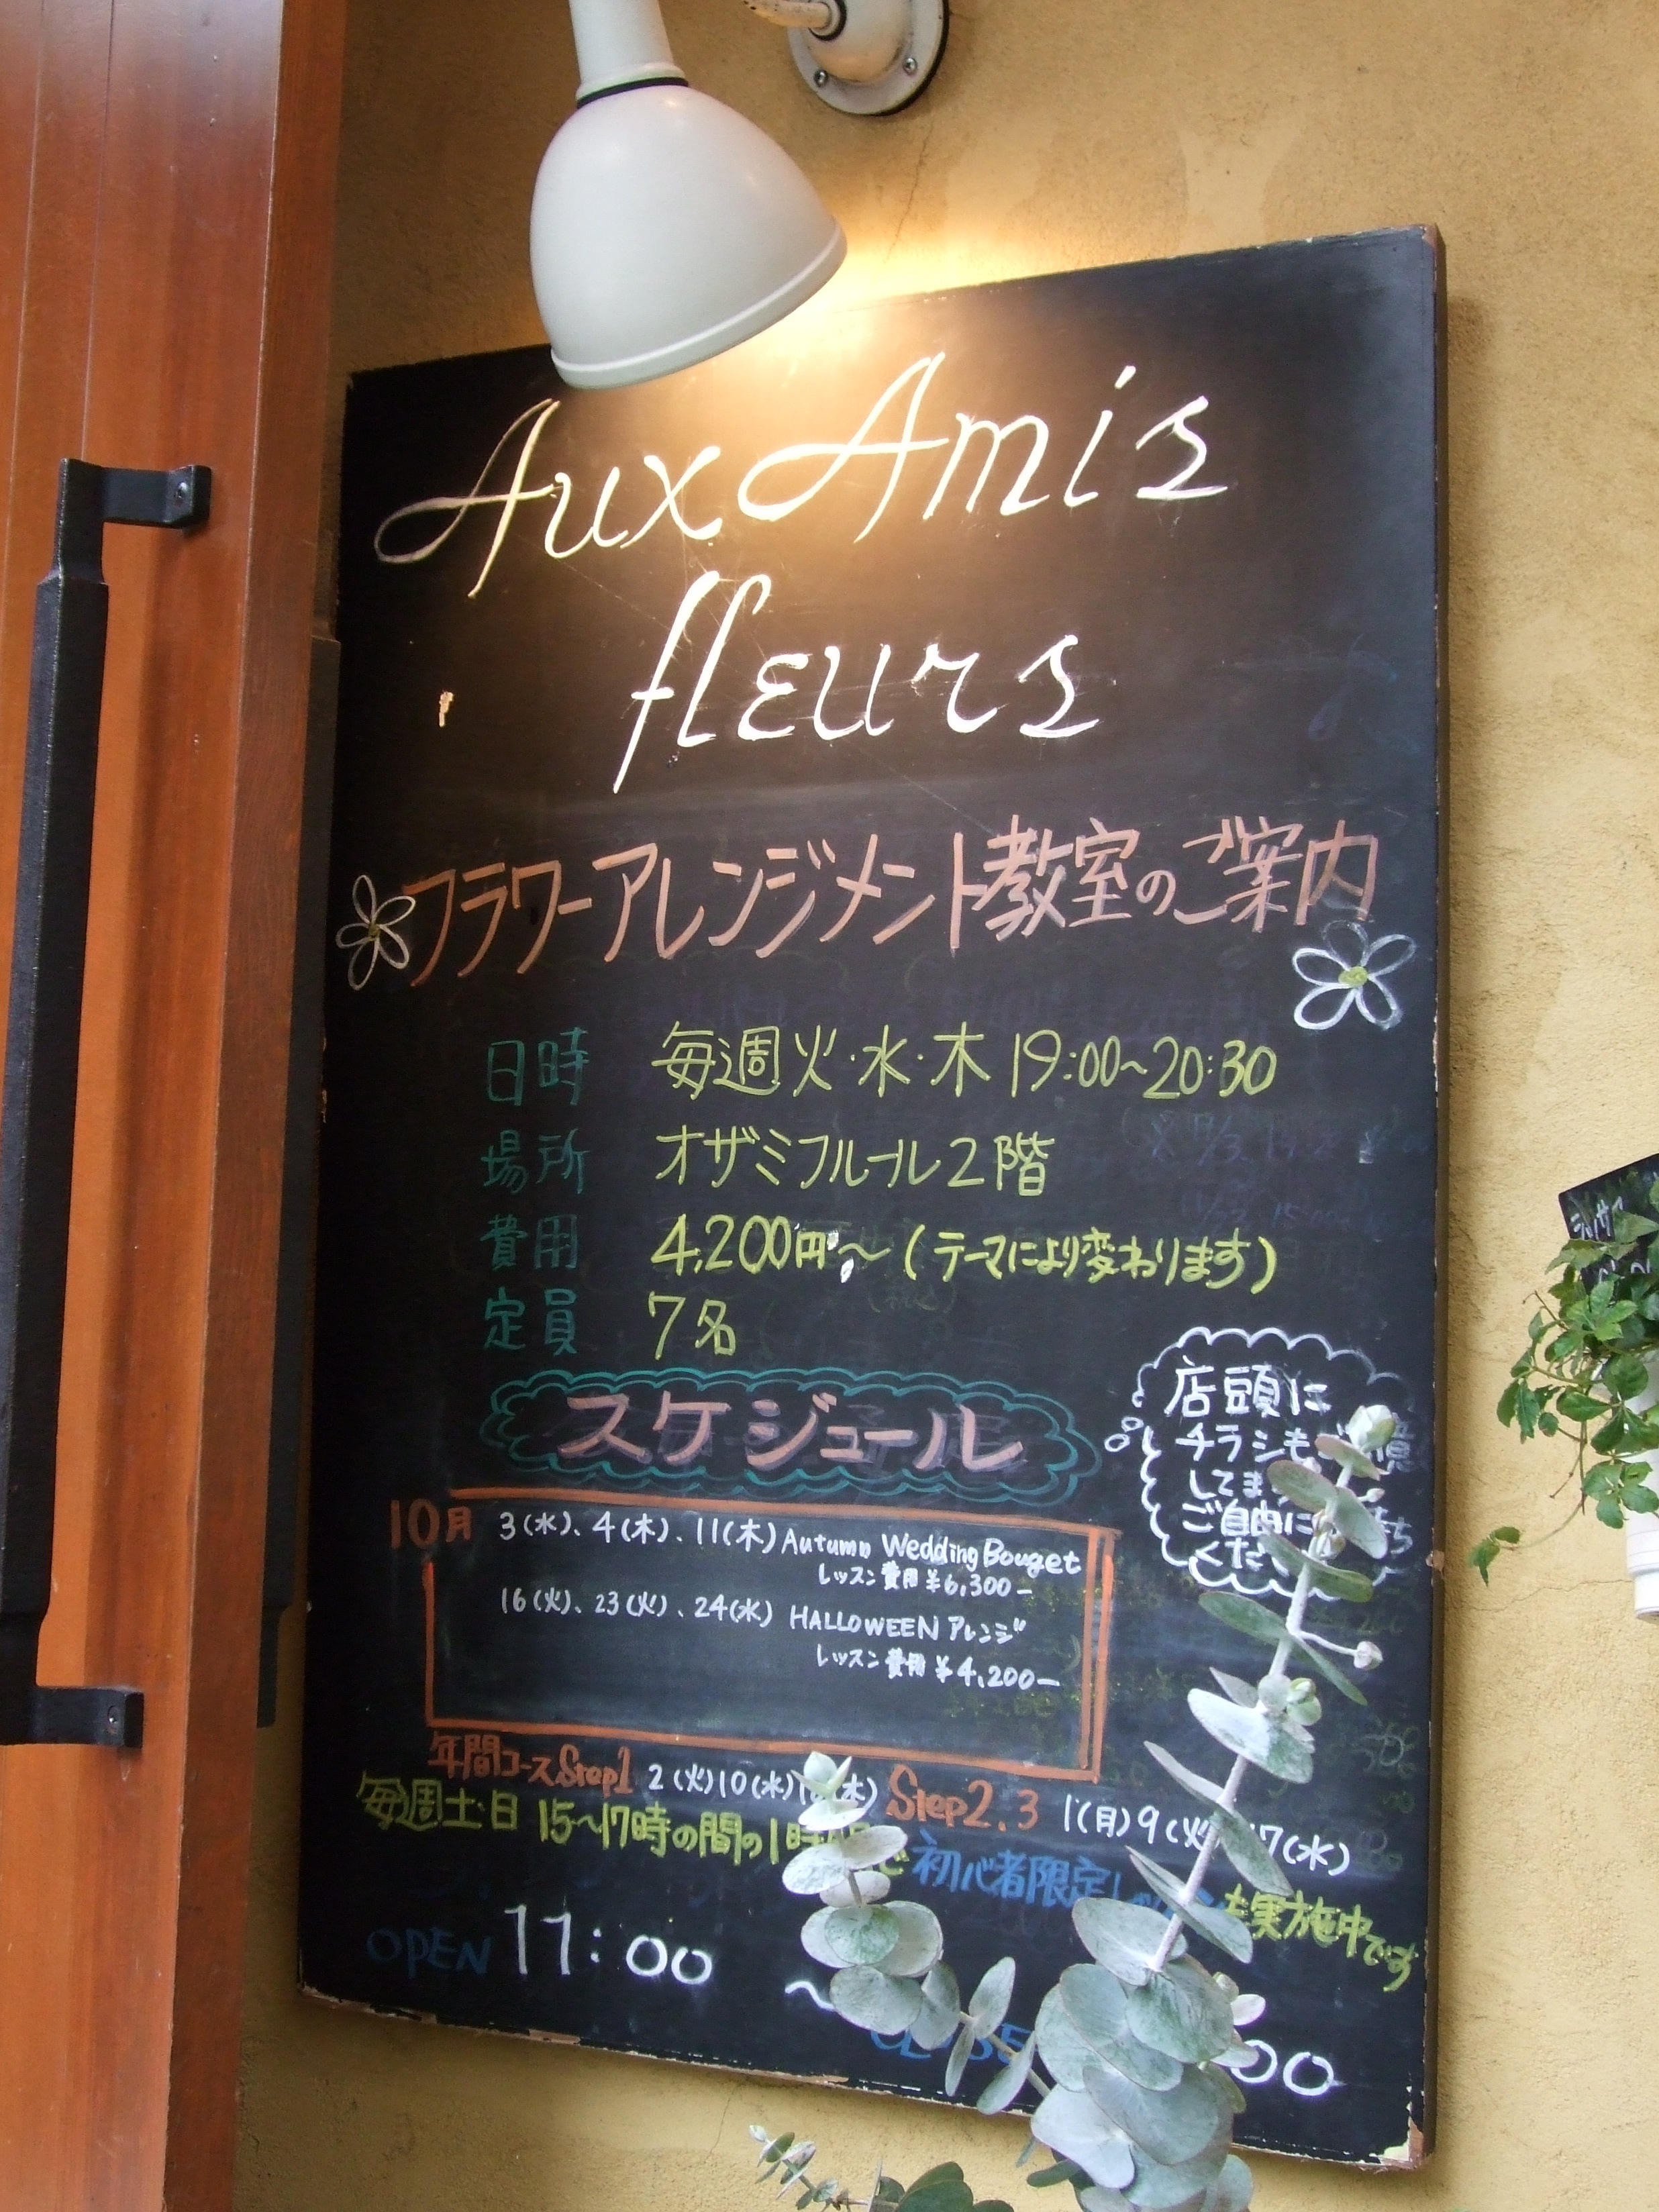 Aux Amis
fleurs
フラワーアレンジメント教室のご案内
日時 毎週火・水・木 19:00~20:30
場所 オザミフルール2階
費用 4,200円~(テーマにより変わります)
定員 7名
スケジュール
店頭に
チラシも
してま
ご自由に
くだ
10月 3(水)、4(木)、11(木) Autumn Wedding Bouget
レッスン費用 ¥6,300-
16(火)、23(火)、24(水) HALLOWEEN アレンジ
レッスン費用 ¥4,200-
年間コース Step1 2(火)10(水) (木) Step2.3 1(月)9(火) 17(水)
毎週土・日 15~17時の間の1時間で 初心者限定レッスンも実施中です
OPEN 11:00
~ CLOSE 00